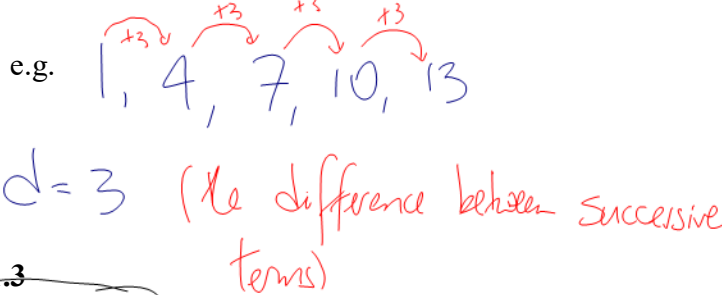 +3 +3 +3 +3
e.g. 1, 4, 7, 10, 13
d = 3 (the difference between successive
terms)
.3